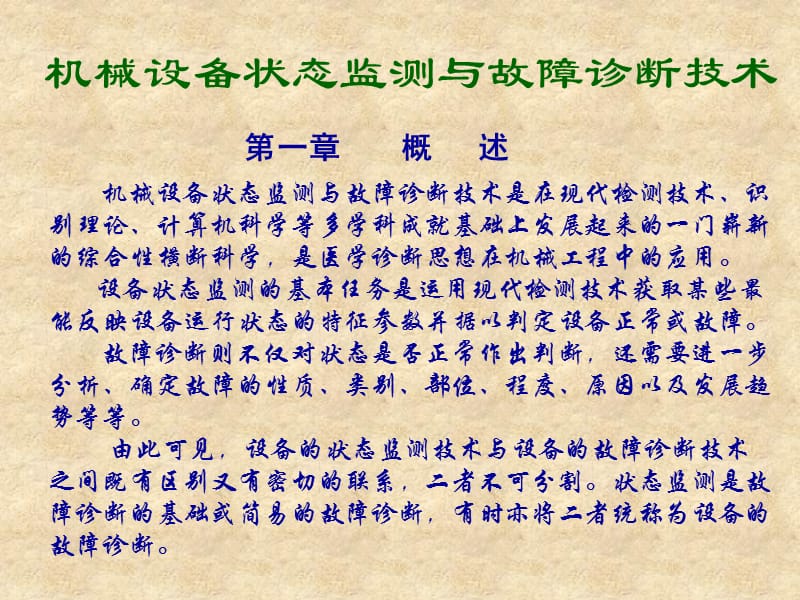 机械设备状态监测与故障诊断技术
第一章 概 述
机械设备状态监测与故障诊断技术是在现代检测技术、识
别理论、计算机科学等多学科成就基础上发展起来的一门崭新
的综合性横断科学，是医学诊断思想在机械工程中的应用。
设备状态监测的基本任务是运用现代检测技术获取某些最
能反映设备运行状态的特征参数并据以判定设备正常或故障。
故障诊断则不仅对状态是否正常作出判断，还需要进一步
分析、确定故障的性质、类别、部位、程度、原因以及发展趋
势等等。
由此可见，设备的状态监测技术与设备的故障诊断技术
之间既有区别又有密切的联系，二者不可分割。状态监测是故
障诊断的基础或简易的故障诊断，有时亦将二者统称为设备的
故障诊断。